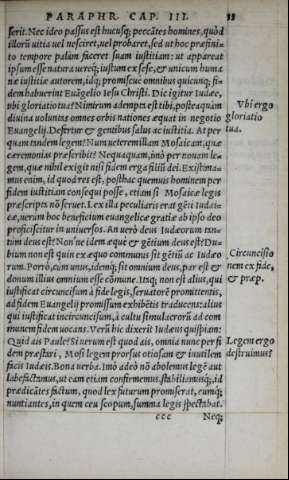 PARAPHR. CAP. III. 33
serit. Nec ideo passus est hucusq; peccãtes homines, quòd
illorũ uitia uel nesciret, uel probaret, sed ut hoc præfini-
to tempore palàm faceret suam iustitiam: ut appareat
ipsum esse natura uereq; iustum ex sese, & unicum huma
næ iustitiæ autorem, idq; promiscue omnibus quicunq; fi-
dem habuerint Euãgelio Iesu Christi. Dic igitur Iudæe,
ubi gloriatio tua? Nimirum adempta est tibi, posteaquàm
diuina uoluntas omnes orbis nationes æquat in negotio
Euangelij. Defertur & gentibus salus ac iustitia. At per
quam tandem legem? Num ueterem illam Mosaicam, quæ
cæremonias præscribit? Nequaquam, imò per nouam le-
gem, quæ nihil exigit nisi fidem erga filiũ dei. Existima-
mus enim, id quod res est, posthac quemuis hominem per
fidem iustitiam consequi posse, etiam si Mosaicæ legis
præscriptũ nõ seruet. Lex illa peculiaris erat gẽti Iudai-
cæ, uerum hoc beneficium euangelicæ gratiæ ab ipso deo
proficiscitur in uniuersos. An uerò deus Iudæorum tan-
tùm deus est? Non'ne idem æquè & gẽtium deus est? Du-
bium non est quin ex æquo communis sit gẽtiũ ac Iudæo
rum. Porrò, cum unus, idemq; sit omnium deus, par est &
donum illius omnium esse cõmune. Itaq; non est alius, qui
iustificat circuncisum à fide legis, seruatorẽ promittentis,
ad fidem Euangelij promissum exhibẽtis traducens: alius
qui iustificat incircuncisum, à cultu simulacrorũ ad com
munem fidem uocans. Verũ hic dixerit Iudæus quispiam:
Quid ais Paule? Si uerum est quod ais, omnia nunc per fi
dem præstari, Mosi legem prorsus otiosam & inutilem
facis Iudæis. Bona uerba. Imò adeò nõ abolemus legẽ aut
labefactamus, ut eam etiam confirmemus, stabiliamusq;, id
prædicãtes factum, quod lex futurum promiserat, eumq;
nuntiantes, in quem ceu scopum, summa legis spectabat.
ccc Neq;
Vbi ergo
gloriatio
tua.
Circuncisio
nem ex fide,
& præp.
Legem ergo
destruimus?